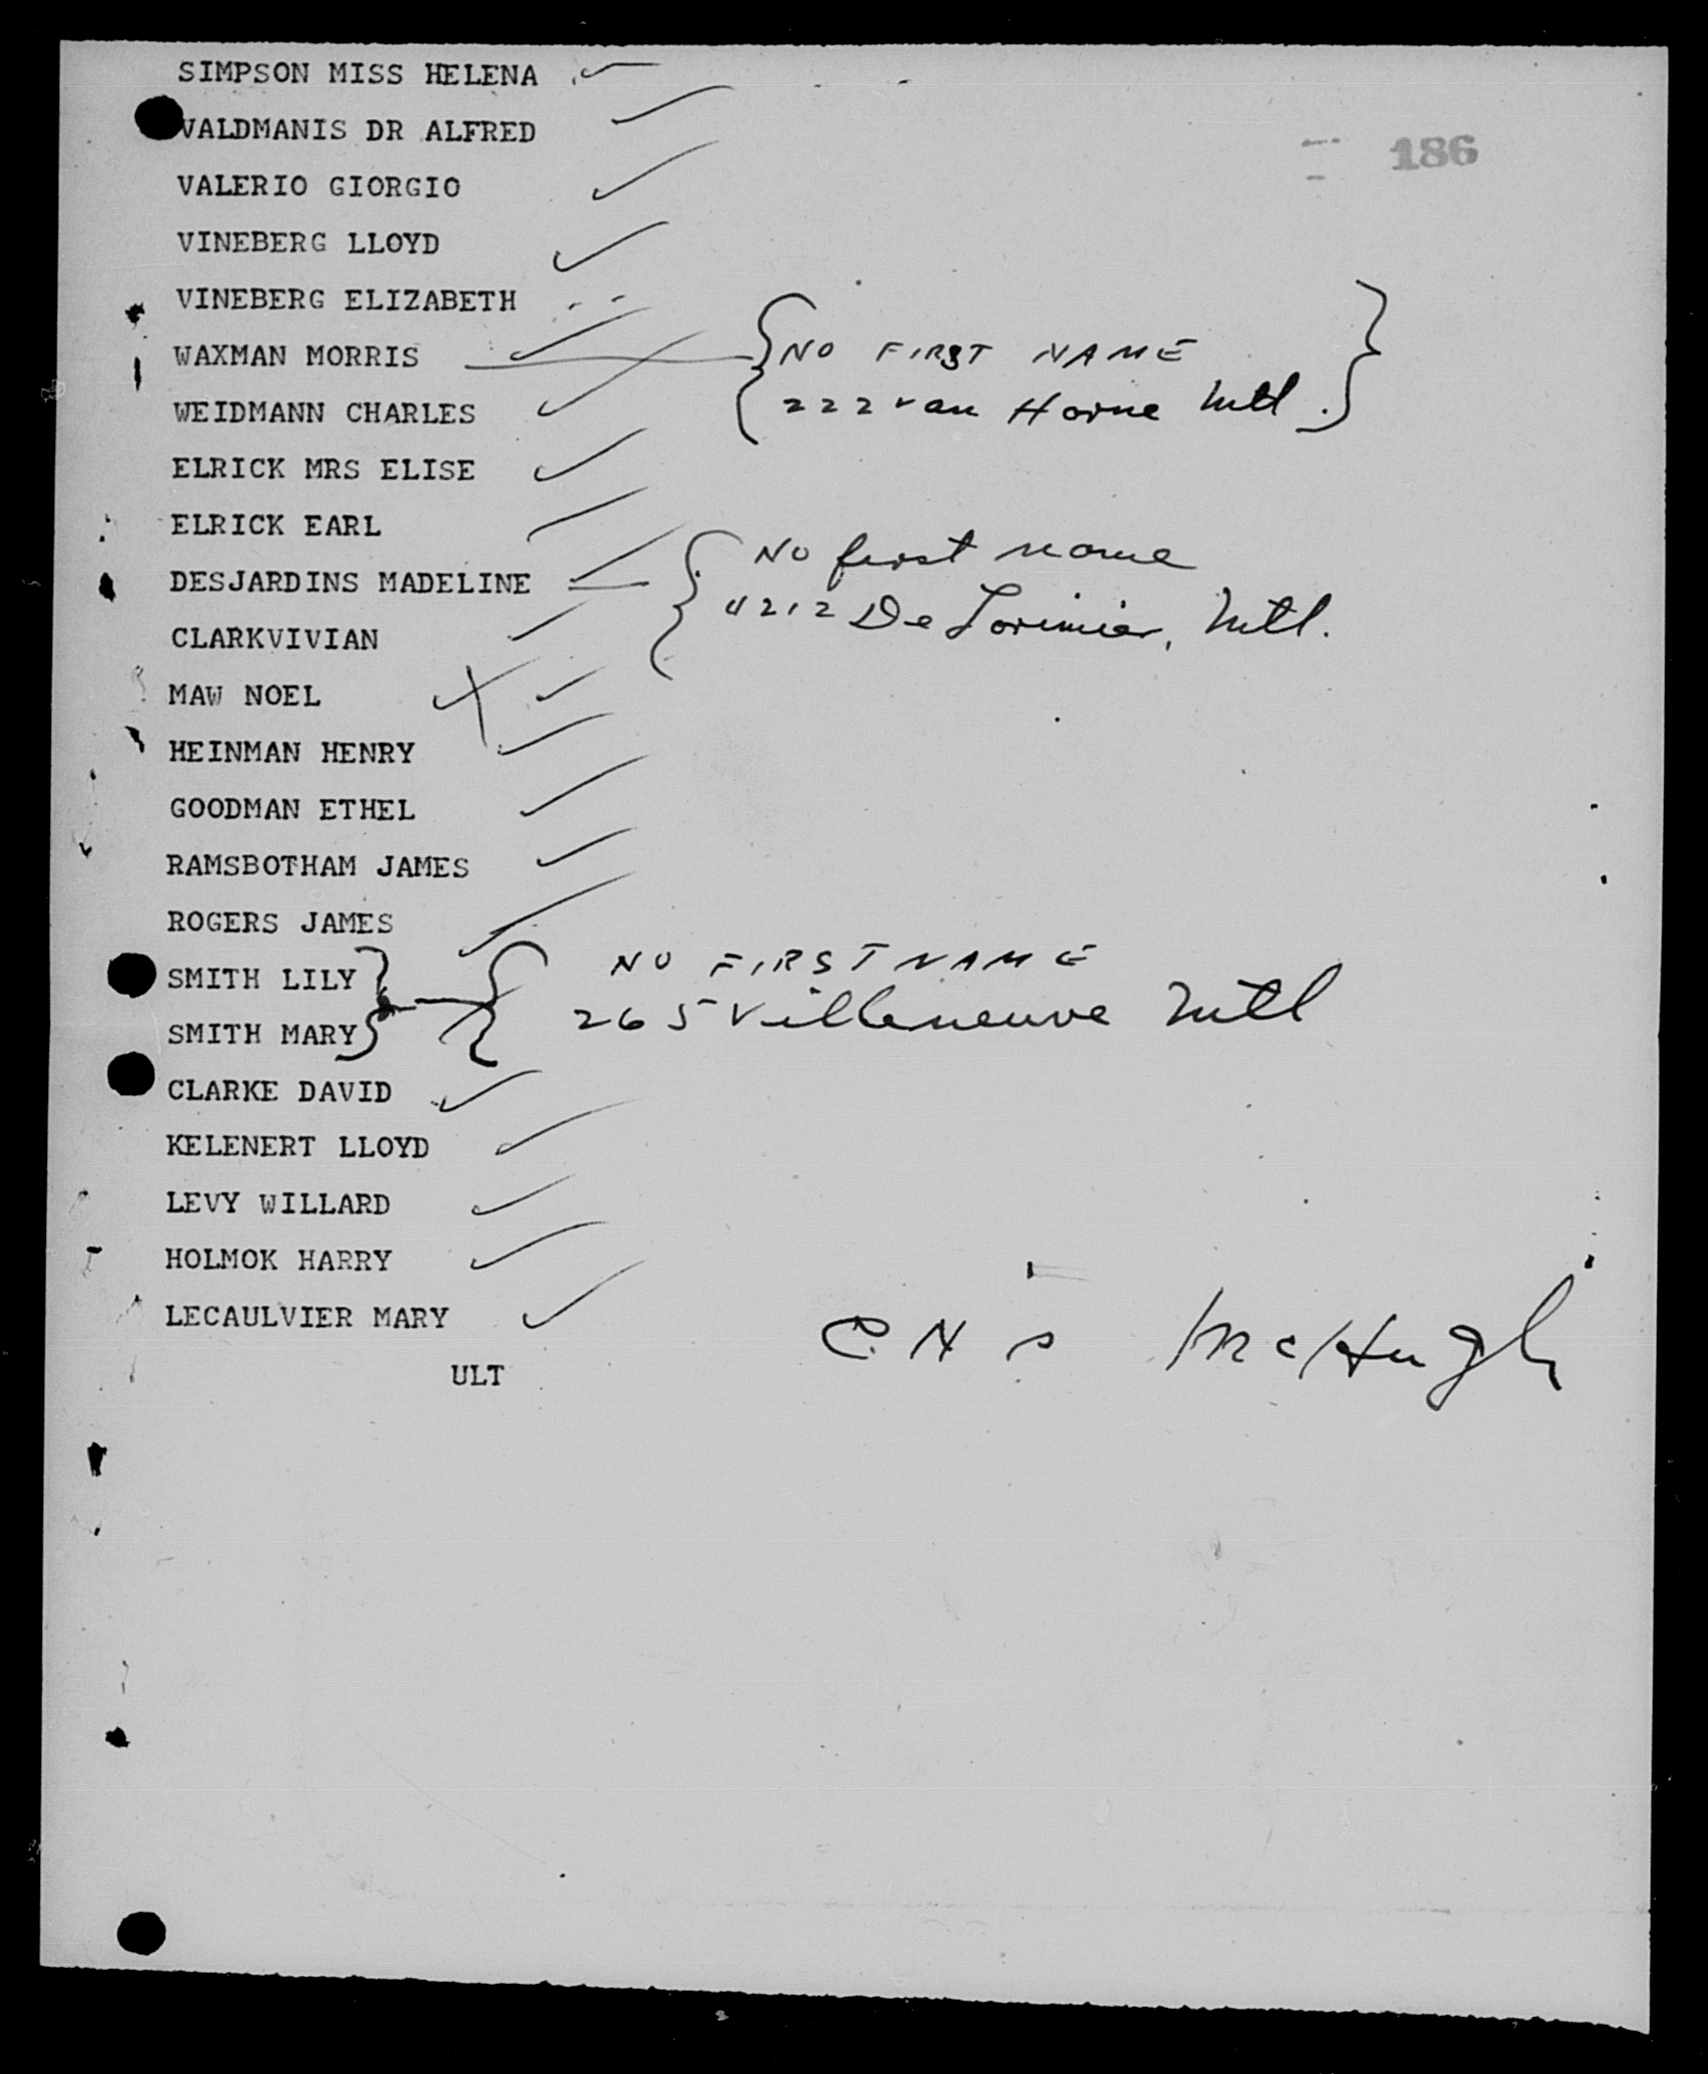 SIMPSON MISS HELENA
VALDMANIS DR ALFRED
186
VALERIO GIORGIO
VINEBERG LLOYD
VINEBERG ELIZABETH
WAXMAN MORRIS
NO FIRST NAME
222 van Horne Mtl.
WEIDMANN CHARLES
ELRICK MRS ELISE
ELRICK EARL
No first name
DESJARDINS MADELINE
4212 De Lorimier, Mtl.
CLARKVIVIAN
MAW NOEL
HEINMAN HENRY
GOODMAN ETHEL
RAMSBOTHAM JAMES
ROGERS JAMES
NO FIRST NAME
SMITH LILY
265 Villeneuve Mtl
SMITH MARY
CLARKE DAVID
KELENERT LLOYD
LEVY WILLARD
HOLMOK HARRY
LECAULVIER MARY
McHugh
ULT